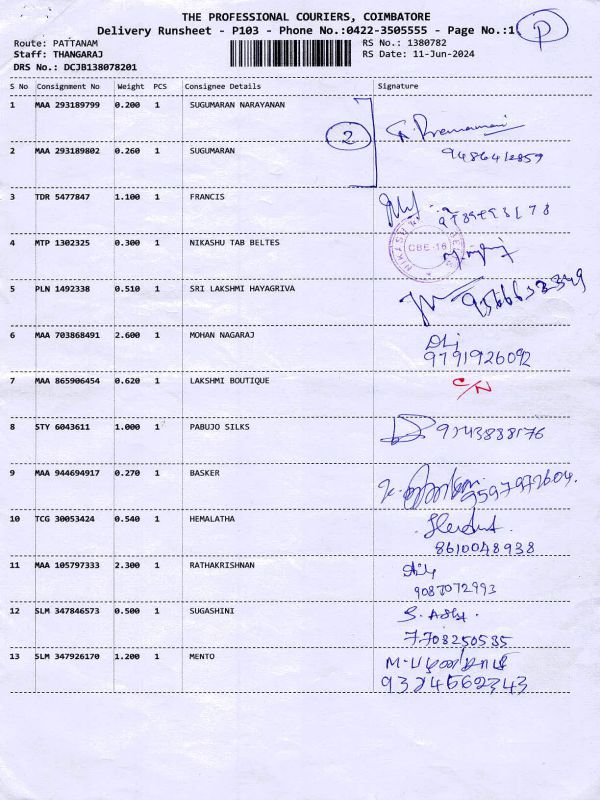 THE PROFESSIONAL COURIERS, COIMBATORE
Delivery Runsheet - P103 - Phone No.:0422-3505555 - Page No.:1
P
Route: PATTANAM
RS No.: 1380782
Staff: THANGARAJ
RS Date: 11-Jun-2024
DRS No.: DCJB138078201
S No Consignment No Weight PCS Consignee Details Signature
1 MAA 293189799 0.200 1 SUGUMARAN NARAYANAN
2
2 MAA 293189802 0.260 1 SUGUMARAN
3 TDR 5477847 1.100 1 FRANCIS
4 MTP 1302325 0.300 1 NIKASHU TAB BELTES
CBE-16
5 PLN 1492338 0.510 1 SRI LAKSHMI HAYAGRIVA
6 MAA 703868491 2.600 1 MOHAN NAGARAJ
9791926092
7 MAA 865906454 0.620 1 LAKSHMI BOUTIQUE C/N
8 STY 6043611 1.000 1 PABUJO SILKS
9 MAA 944694917 0.270 1 BASKER
10 TCG 30053424 0.540 1 HEMALATHA
8610048938
11 MAA 105797333 2.300 1 RATHAKRISHNAN
9087072993
12 SLM 347846573 0.500 1 SUGASHINI
7708250535
13 SLM 347926170 1.200 1 MENTO
9324562343